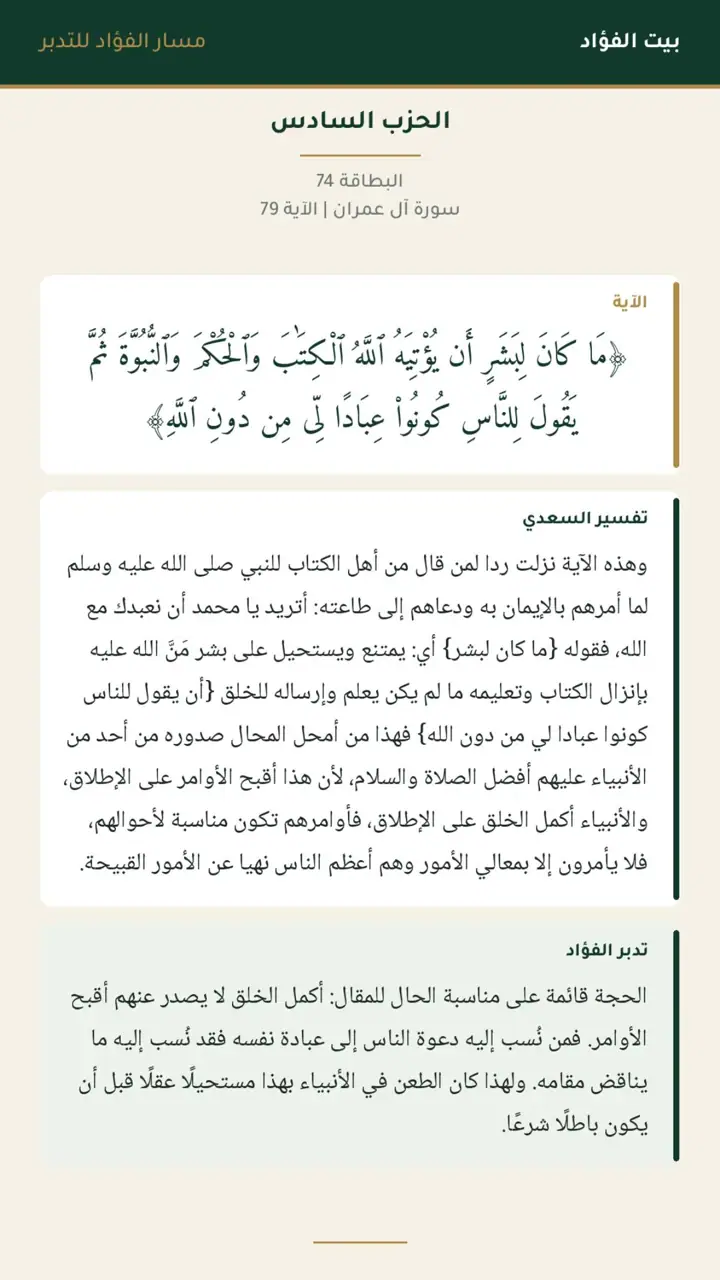 بيت الفؤاد
مسار الفؤاد للتدبر
الحزب السادس
البطاقة 74
سورة آل عمران | الآية 79
الآية
﴿مَا كَانَ لِبَشَرٍ أَن يُؤْتِيَهُ ٱللَّهُ ٱلْكِتَٰبَ وَٱلْحُكْمَ وَٱلنُّبُوَّةَ ثُمَّ
يَقُولَ لِلنَّاسِ كُونُوا۟ عِبَادًا لِّى مِن دُونِ ٱللَّهِ﴾
تفسير السعدي
وهذه الآية نزلت ردا لمن قال من أهل الكتاب للنبي صلى الله عليه وسلم
لما أمرهم بالإيمان به ودعاهم إلى طاعته: أتريد يا محمد أن نعبدك مع
الله، فقوله {ما كان لبشر} أي: يمتنع ويستحيل على بشر مَنَّ الله عليه
بإنزال الكتاب وتعليمه ما لم يكن يعلم وإرساله للخلق {أن يقول للناس
كونوا عبادا لي من دون الله} فهذا من أمحل المحال صدوره من أحد من
الأنبياء عليهم أفضل الصلاة والسلام، لأن هذا أقبح الأوامر على الإطلاق،
والأنبياء أكمل الخلق على الإطلاق، فأوامرهم تكون مناسبة لأحوالهم،
فلا يأمرون إلا بمعالي الأمور وهم أعظم الناس نهيا عن الأمور القبيحة.
تدبر الفؤاد
الحجة قائمة على مناسبة الحال للمقال: أكمل الخلق لا يصدر عنهم أقبح
الأوامر. فمن نُسب إليه دعوة الناس إلى عبادة نفسه فقد نُسب إليه ما
يناقض مقامه. ولهذا كان الطعن في الأنبياء بهذا مستحيلًا عقلًا قبل أن
يكون باطلًا شرعًا.